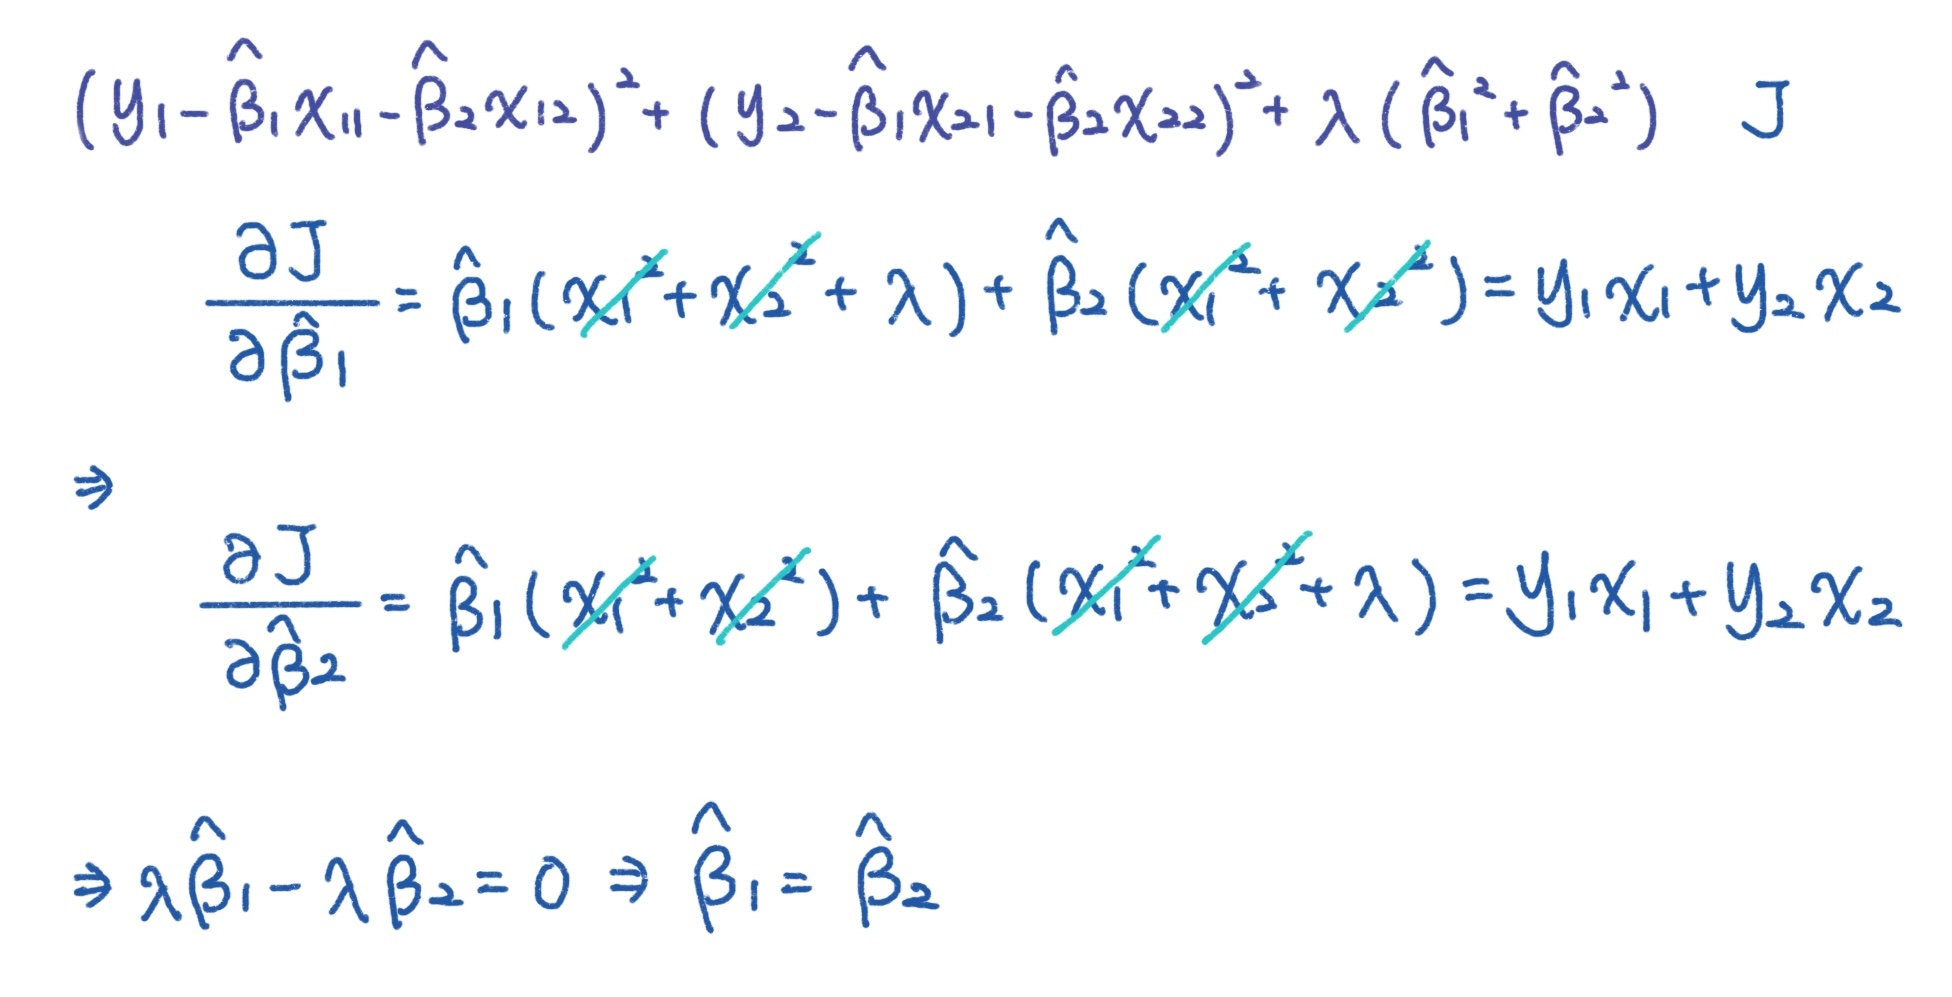 (y₁ - β̂₁x₁₁ - β̂₂x₁₂)² + (y₂ - β̂₁x₂₁ - β̂₂x₂₂)² + λ(β̂₁² + β̂₂²) J
∂J/∂β̂₁ = β̂₁(x₁² + x₂² + λ) + β̂₂(x₁² + x₂²) = y₁x₁ + y₂x₂
⇒
∂J/∂β̂₂ = β̂₁(x₁² + x₂²) + β̂₂(x₁² + x₂² + λ) = y₁x₁ + y₂x₂
⇒ λβ̂₁ - λβ̂₂ = 0 ⇒ β̂₁ = β̂₂